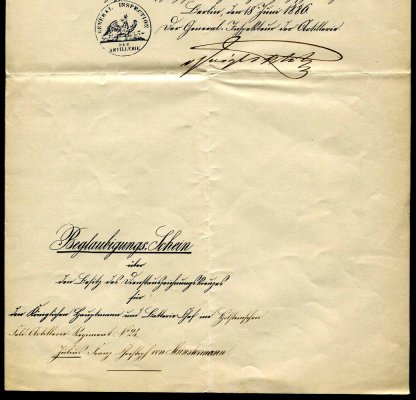 Berlin, den 18 Juni 1886.
Der General-Inspekteur der Artillerie
GENERAL INSPECTION
DER
ARTILLERIE
Beglaubigungs-Schein
über
den Besitz des Dienstauszeichnungskreuzes
für
den Königlichen Hauptmann und Batterie-Chef im Holsteinschen
Feld-Artillerie Regiment No 24
Julius Franz von Munstermann.